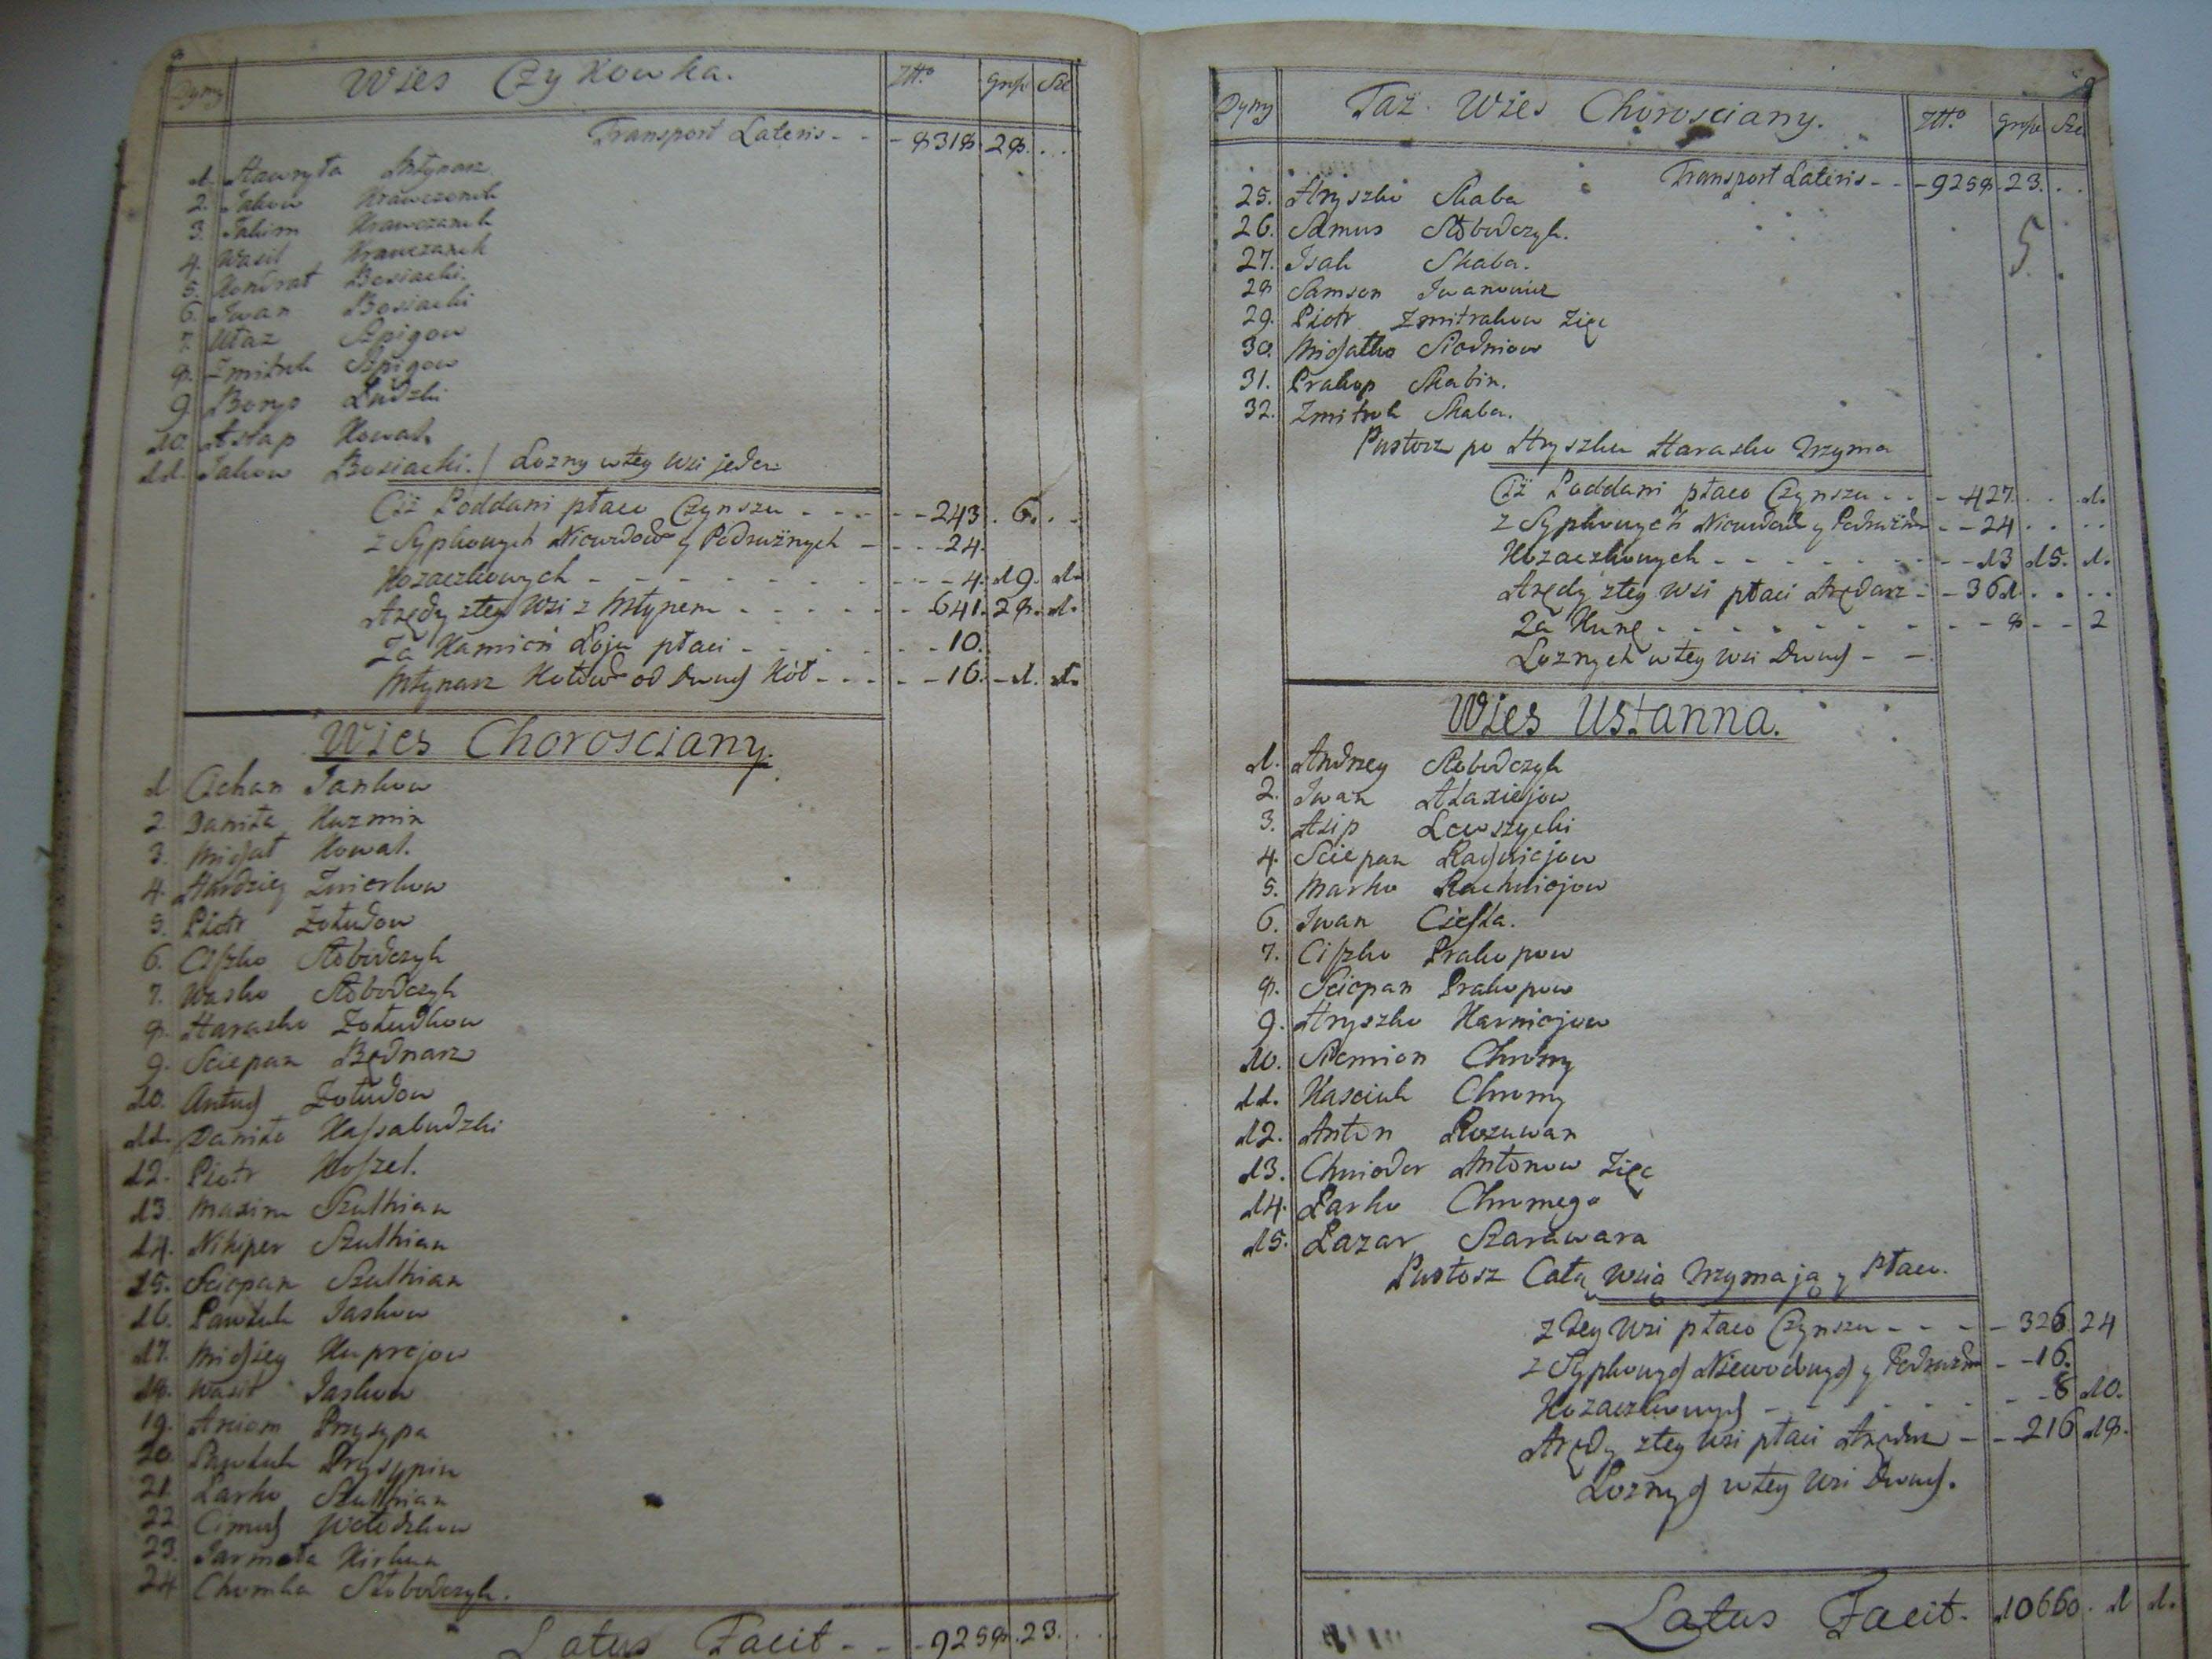 8
Dymy Wies Czykowka. Złł.o grosz Sze
Transport Lateris - - 8318. 28. . .
1. Hawryła Młynarz
2. Jakow Krawczonek
3. Jakim Krawczonek
4. Wasil Krawczonek
5. Kondrat Bosiacki.
6. Iwan Bosiacki
7. Ułaz Szpigow
8. Zmitruk Szpigow
9. Borys Ludzki
10. Astap Kowal.
11. Jakow Bosiacki. / Lozny w tey wsi jeden
Ciż Poddani płaco Czynszu - - - 243. 6. . .
z Sypkowych Niewodow y Podrużnych - - - 24.
Kozaczkowych - - - 4. 19. 1.
Arędy z tey Wsi z Młynem - - - 641. 28. 1.
Za Kamień Łoju płaci - - - 10.
Młynarz od Dwuch Kół - - - 16. - 1. 1.
Wies Chorosciany.
1. Cichan Jankow
2. Daniła Kuzmin
3. Michał Kowal.
4. Hardziey Zmierkow
5. Piotr Zołudow
6. Ciszko Słobodczyk
7. Wasko Słobodczyk
8. Harasko Zołudkow
9. Sciepan Będnarz
10. Antuch Zołudow
11. Daniło Kassabudzki
12. Piotr Koszel.
13. Maxim Szulhian
14. Nikiper Szulhian
15. Sciepan Szulhian
16. Pawluk Jaskow
17. Michiey Kuprejow
18. Wasil Jaskow
19. Arciom Przysypa
20. Pawluk Prysypin
21. Larko Szulhian
22. Cimuch Wołodkow
23. Jarmoła Kirkun
24. Chomka Słobodczyk.
Latus Facit - - 9258. 23. . .
9
Dymy Taż Wies Chorosciany. Złł.o grosz Sze
Transport Lateris - - 9258. 23. . .
25. Hryszko Skaba
26. Samus Słobodczyk.
27. Isak Skaba.
28 Samson Iwanowicz
29. Piotr Zmitrakow Zięc
30. Michałko Siodniow
31. Prakop Skabin.
32. Zmitruk Skaba.
Pustosz po Hryszku Harasko Trzyma
Ciż Poddani płaco Czynszu - - - 427. . . 1.
z Sypkowych y - - 24 . . . .
Kozaczkowych - - - 13 15. 1.
Arędy z tey Wsi płaci Arędarz - - 361. . . .
Za Kunę - - - 8 - - 2
Loznych w tey wsi Dwuch - -
Wies Ustanna.
1. Andrzey Słobodczyk
2. Iwan Alaxiejow
3. Asip Lewszycki
4. Sciepan Rachwiejow
5. Marko Rachwiejow
6. Iwan Ciesla.
7. Ciszko Prakopow
8. Sciepan Prakopow
9. Hryszko Karniejow
10. Siemion Chromy
11. Kasciuk Chromy
12. Anton Rozuwan
13. Chwiedor Antonow Zięc
14. Larko Chromego
15. Łazar Szarawara
Pustosz Całą wsią Trzymają y Płaco.
z Tey Wsi płaco Czynszu - - - 326. 24
z Sypkowych Niewodnych y - - 16.
Kozaczkowych - - - 8 10.
Arędy z tey Wsi płaci Arędarz - - 216 18.
Loznych w tey Wsi Dwuch.
Latus Facit. 10660. 1 1.